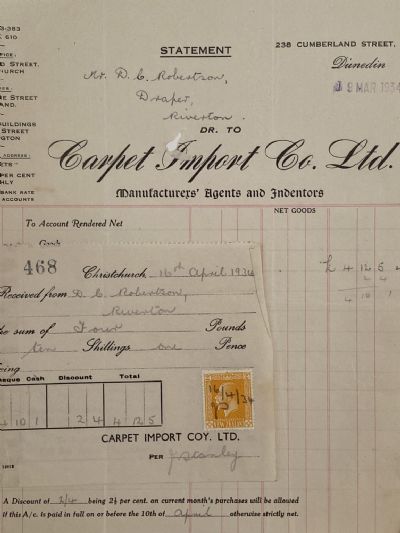 3-383
610
STATEMENT
238 CUMBERLAND STREET,
Dunedin
9 MAR 1934
FICE:
D STREET.
CHURCH
E STREET
AND.
BUILDINGS
STREET
NGTON
ADDRESS:
ETS
PER CENT
HLY
BANK RATE
ACCOUNTS
Mr. D. C. Robertson,
Draper,
Riverton.
DR. TO
Carpet Import Co. Ltd.
Manufacturers' Agents and Indentors
NET GOODS
To Account Rendered Net
Goods
£ 4 12 5
2 4
4 10 1
468
Christchurch, 16th April 1934
Received from D. C. Robertson,
Riverton
he sum of Four Pounds
ten Shillings one Pence
eing
eque Cash Discount Total
4 10 1 2 4 4 12 5
16/4/34
NEW ZEALAND
CARPET IMPORT COY. LTD.
PER
A Discount of 2/4 being 2½ per cent. on current month's purchases will be allowed
if this A/c. is paid in full on or before the 10th of April otherwise strictly net.